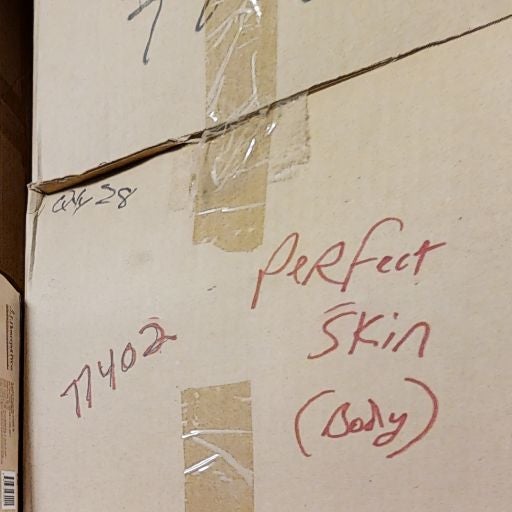 Qty 28
Perfect
Skin
(Body)
77402